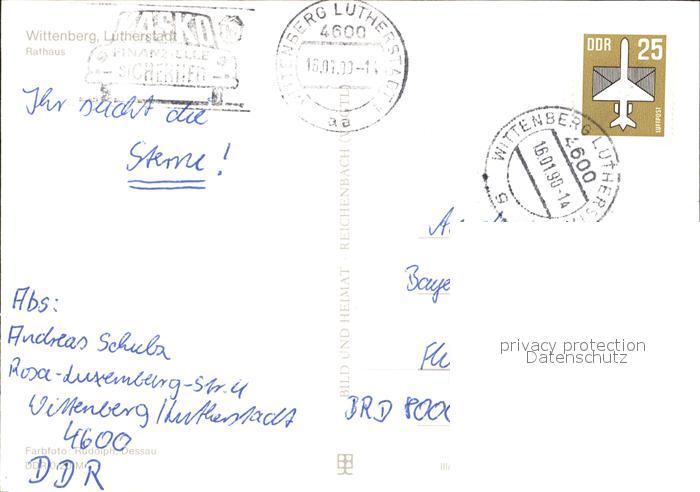 Wittenberg, Lutherstadt
Rathaus
KASKO
FINANZIELLE
SICHERHEIT
WITTENBERG LUTHERSTADT
4600
16.01.90-14
aa
DDR 25
LUFTPOST
WITTENBERG LUTHERST
4600
16.01.90-14
Ihr sucht die
Sterne!
BILD UND HEIMAT · REICHENBACH (VOGTL)
Baye
BRD 8000
privacy protection
Datenschutz
Abs:
Andreas Schulz
Rosa-Luxemburg-Str. 4
Wittenberg/Lutherstadt
4600
DDR
Farbfoto: Rudolph, Dessau
DDR
M
III/